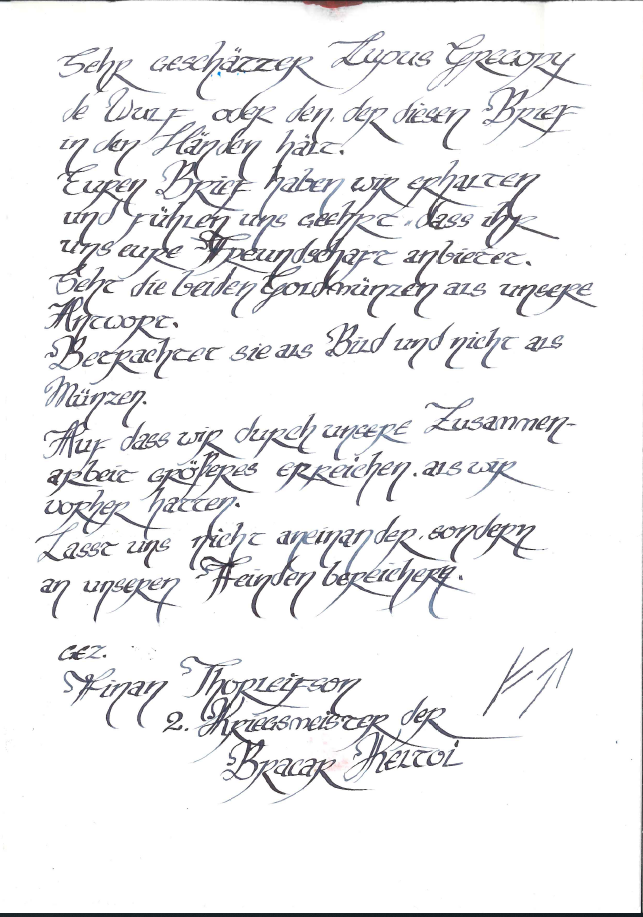 Sehr geschätzter Lupus Gregory
de Wulf oder den, der diesen Brief
in den Händen hält.
Euren Brief haben wir erhalten
und fühlen uns geehrt, dass ihr
uns eure Freundschaft anbietet.
Seht die beiden Goldmünzen als unsere
Antwort.
Betrachtet sie als Bild und nicht als
Münzen.
Auf dass wir durch unsere Zusammen-
arbeit größeres erreichen, als wir
vorher hatten.
Lasst uns nicht aneinander, sondern
an unseren Feinden bereichern.
gez.
Finan Thorleifson
2. Kriegsmeister der
Bracar Keltoi